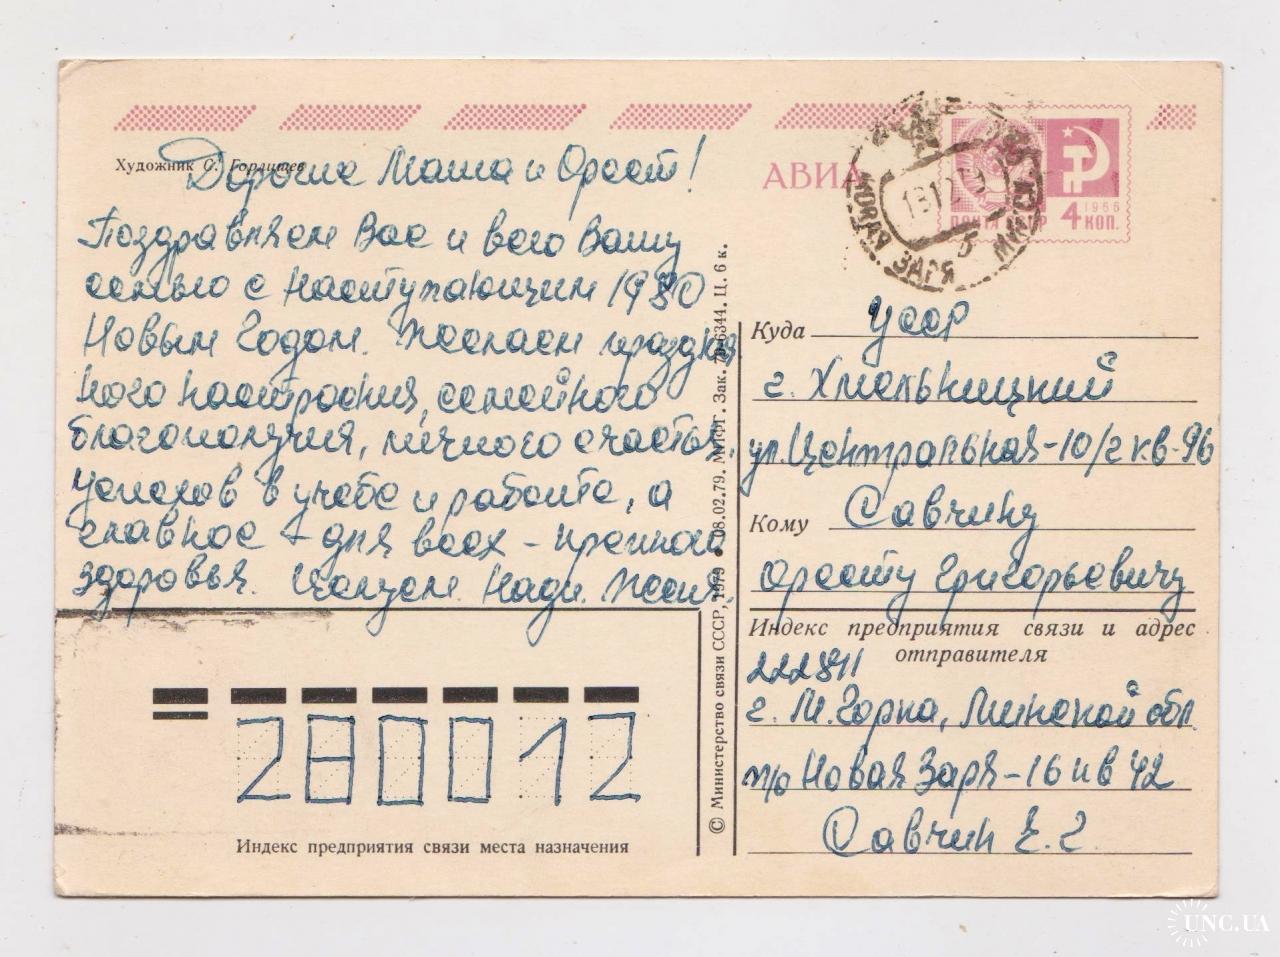 Художник С. Горлищев
Дорогие Маша и Орест!
Поздравляем Вас и всю Вашу
семью с наступающим 1980
Новым Годом. Желаем празднич
ного настроения, семейного
благополучия, личного счастья,
успехов в учебе и работе, а
главное - для всех - крепкого
здоровья. Целуем. Надя. Женя.
АВИА
ПОЧТА СССР 4 КОП.
1966
НОВАЯ ЗАРЯ
Куда УССР
г. Хмельницкий
ул. Центральная-10/2 кв-96
Кому Савчину
Оресту Григорьевичу
Индекс предприятия связи и адрес
отправителя
222811
г. М. Горка, Минской обл
п/о Новая Заря-16 кв 42
Савчин Е. Г.
© Министерство связи СССР, 1979 • 08.02.79. МПФГ. Зак. 79-6344. Ц. 6 к.
280012
Индекс предприятия связи места назначения
UNC.UA